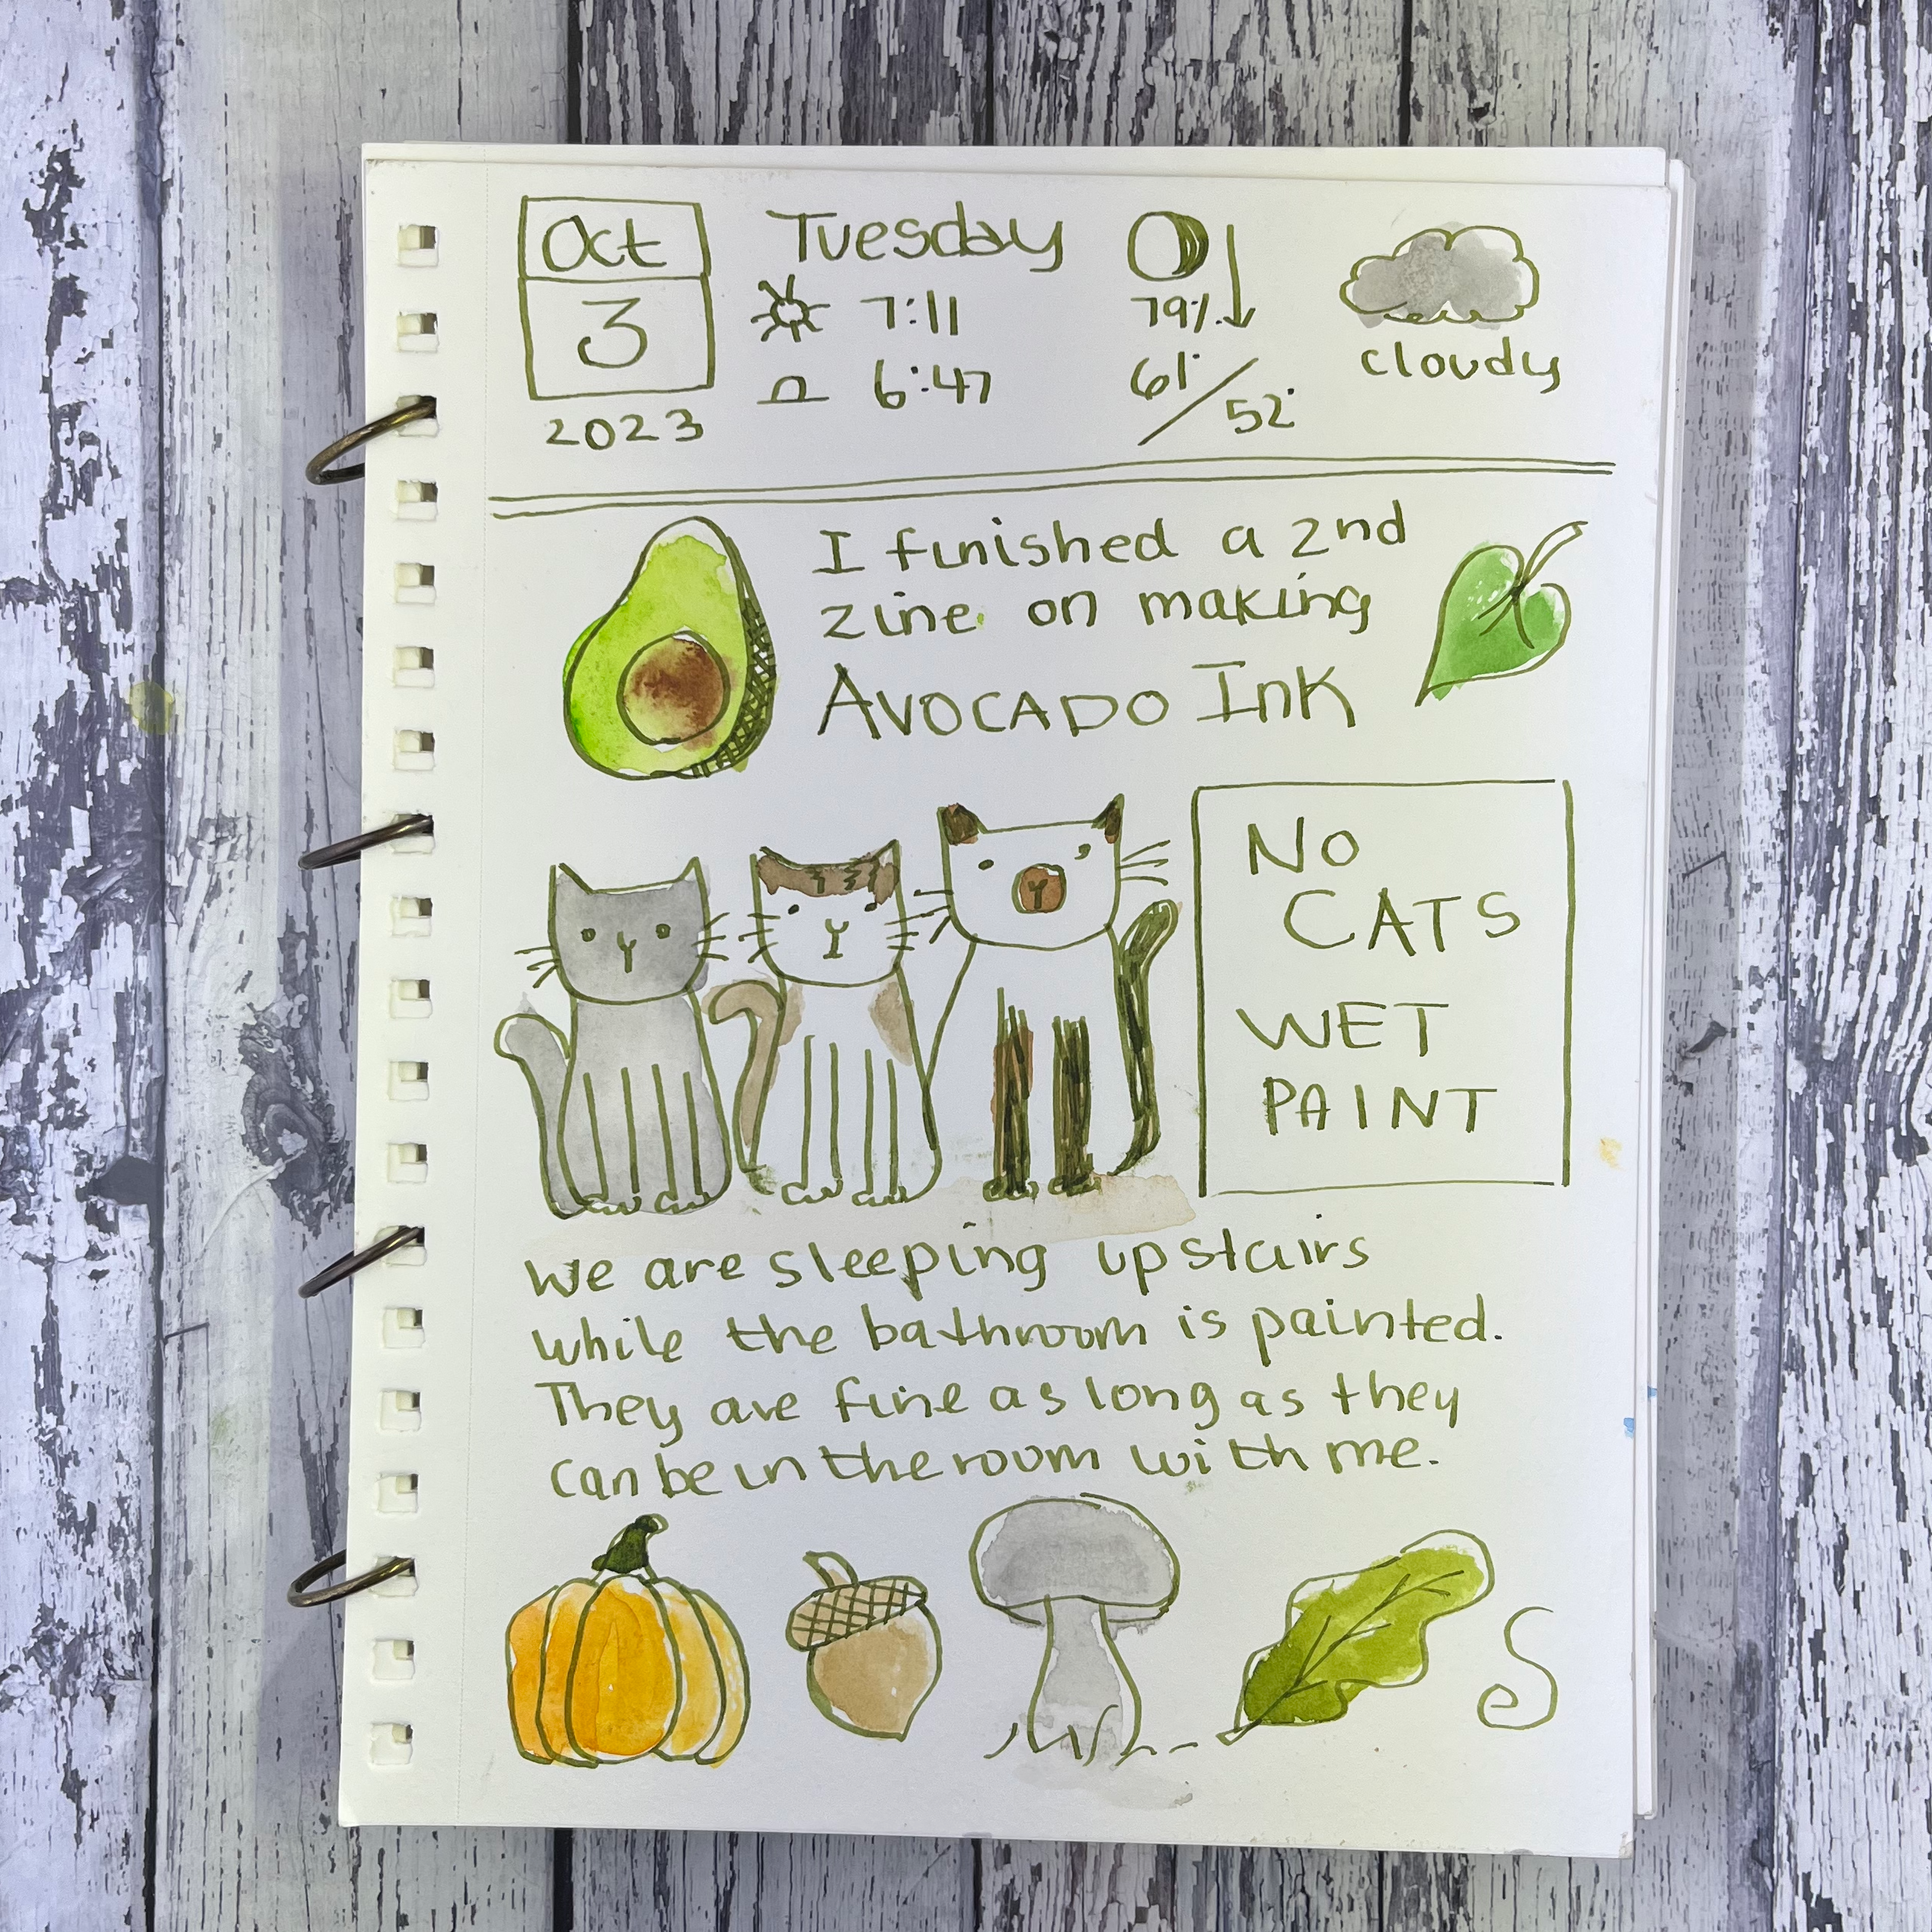 Oct
3
2023
Tuesday
7:11
6:47
79%
61°/52°
cloudy
I finished a 2nd
zine on making
AVOCADO INK
NO
CATS
WET
PAINT
We are sleeping upstairs
while the bathroom is painted.
They are fine as long as they
can be in the room with me.
S